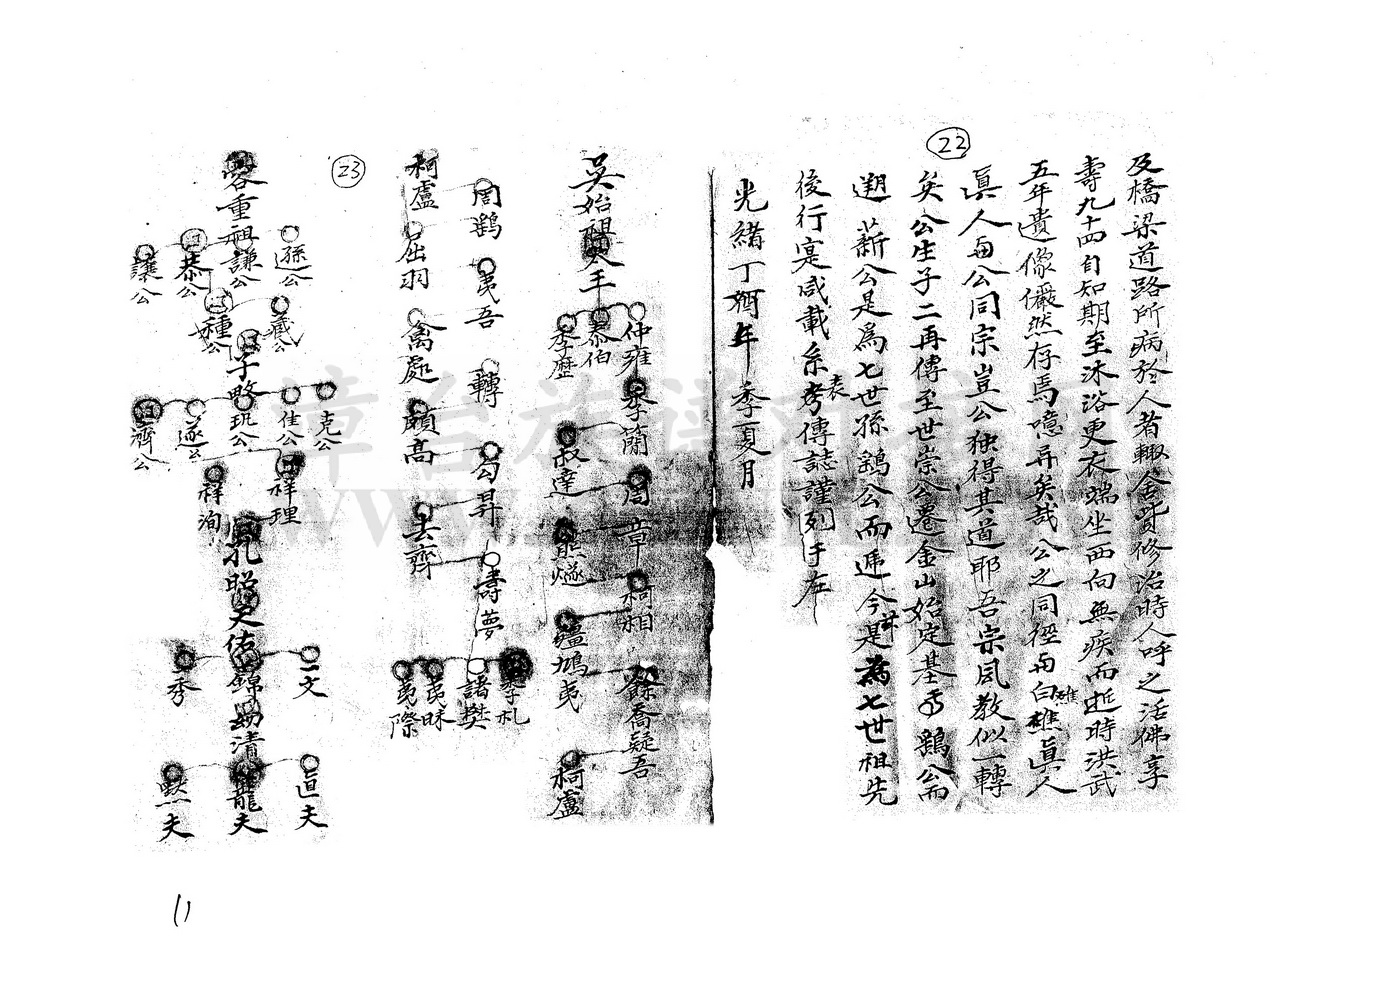 22
及橋梁道路所病於人者輙舍貲修治時人呼之活佛享
壽九十四自知期至沐浴更衣端坐西向無疾而逝時洪武
五年遺像儼然存焉噫异矣哉公之同徑与白樵真人
樵
真人与公同宗豈公独得其道耶吾宗凤教似一轉
矣公生子二再傳至世崇公遷金山始定基焉鷄公而
遡薪公是爲七世孫鷄公而遞今是為七世祖先
後行寔咸載系考傳誌謹列于左
表
光緒丁酉年季夏月
吳始祖太王
仲雍
泰伯
季歷
季簡
叔達
周章
熊遂
柯相
疆鳩夷
餘喬疑吾
柯盧
周鷂
夷吾
轉
句昇
壽夢
柯盧
屈羽
禽處
頗高
去齊
季札
諸樊
夷昧
夷際
23
容重祖謙公
遜公
恭公
讓公
種公
子略
克公
佳公
玑公
遂公
濟公
祥理
祥洵
孔昭
天佑
錦
一文
一秀
幼清
直夫
龍夫
默夫
11
章台族谱对接网